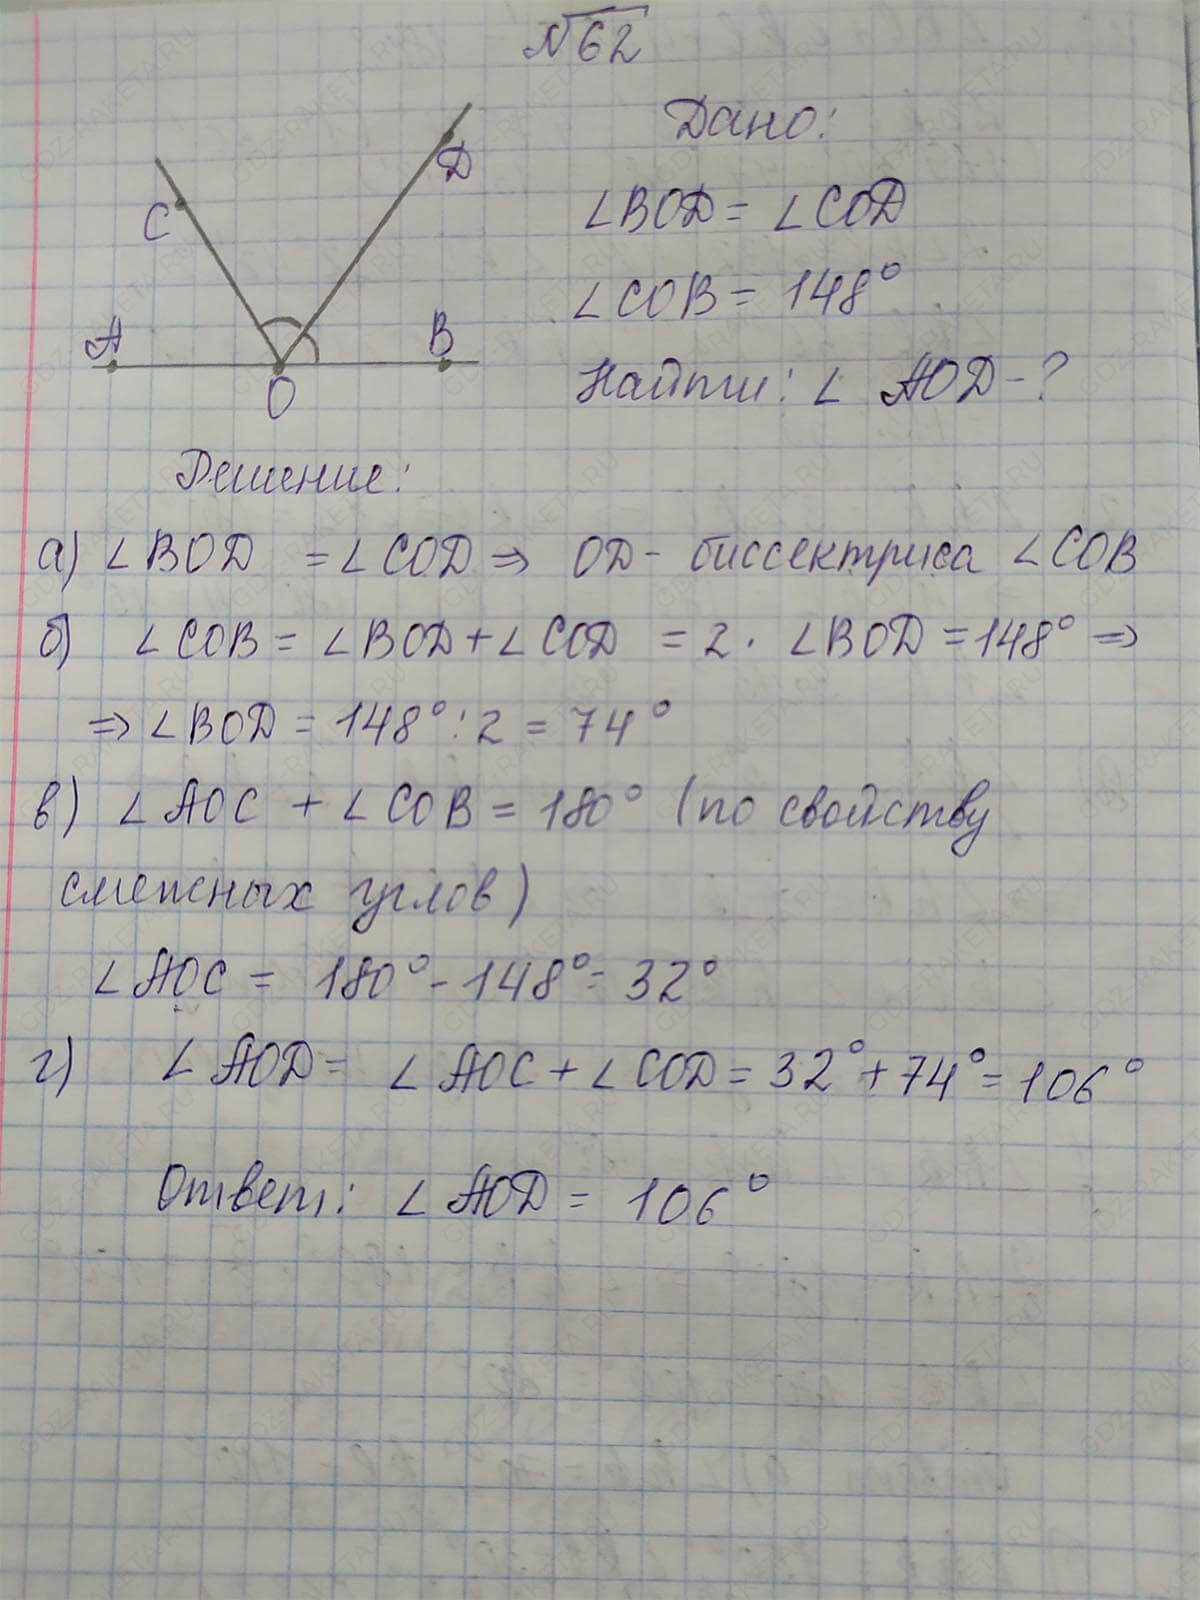 №62
C
D
A
B
O
Дано:
∠BOD = ∠COD
∠COB = 148°
Найти: ∠ AOD - ?
Решение:
а) ∠BOD = ∠COD ⇒ OD - биссектриса ∠COB
б) ∠COB = ∠BOD + ∠COD = 2 · ∠BOD = 148° ⇒
⇒ ∠BOD = 148° : 2 = 74°
в) ∠AOC + ∠COB = 180° (по свойству
смежных углов)
∠AOC = 180° - 148° = 32°
г) ∠AOD = ∠AOC + ∠COD = 32° + 74° = 106°
Ответ: ∠AOD = 106°